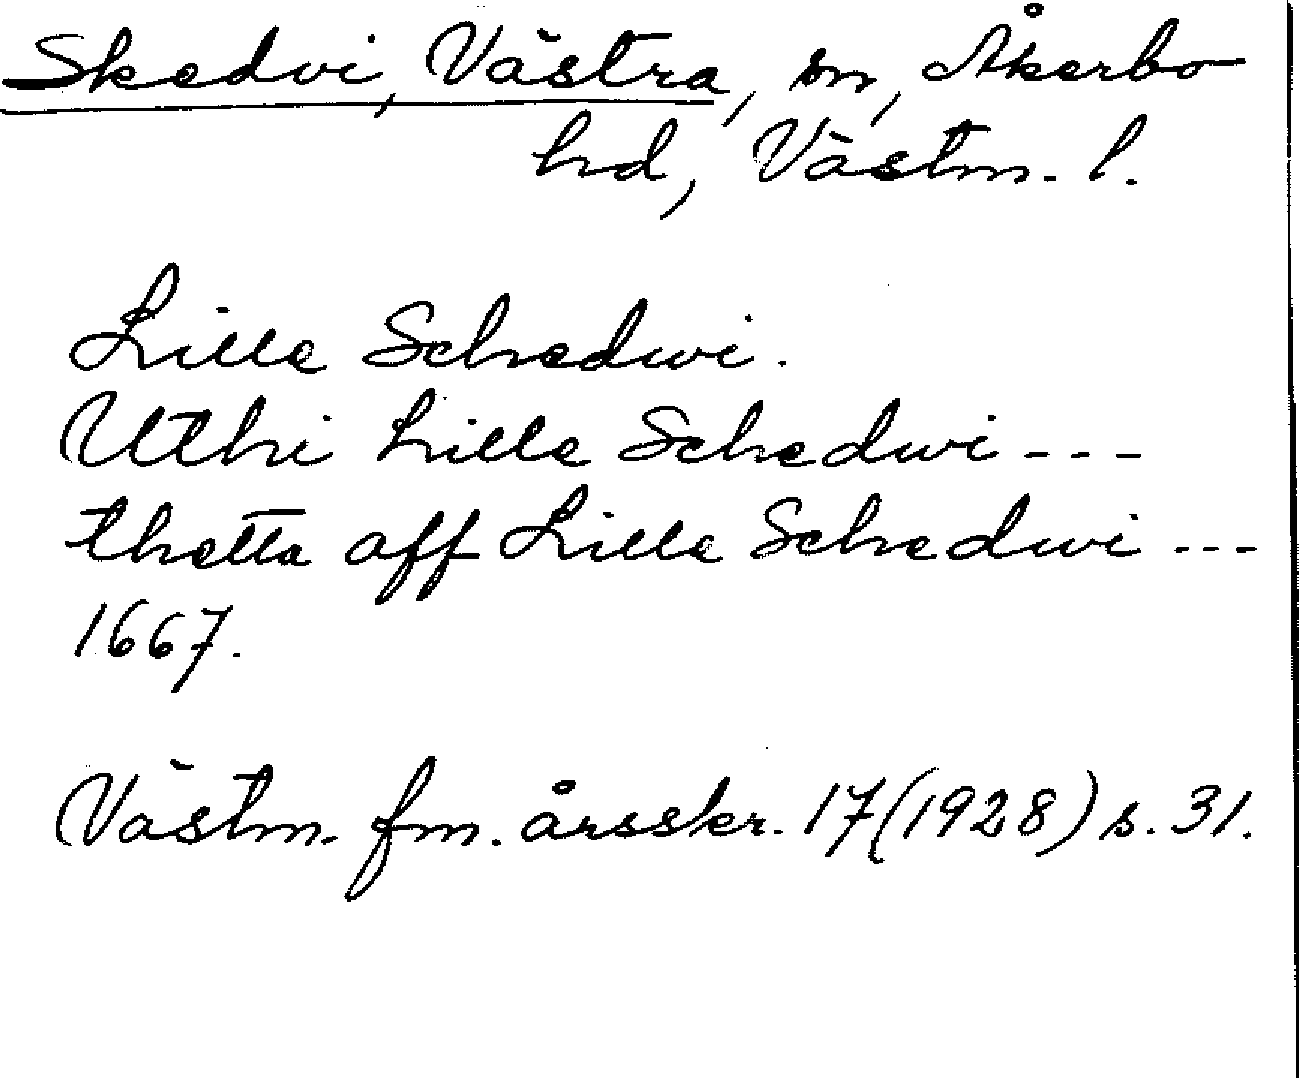 Skedvi, Västra, sn, Åkerbo
hd, Västm. l.
Lille Schedwi.
Uthi Lille Schedwi ---
thetta aff Lille Schedwi ---
1667.
Västm. fm. årsskr. 17 (1928) s. 31.